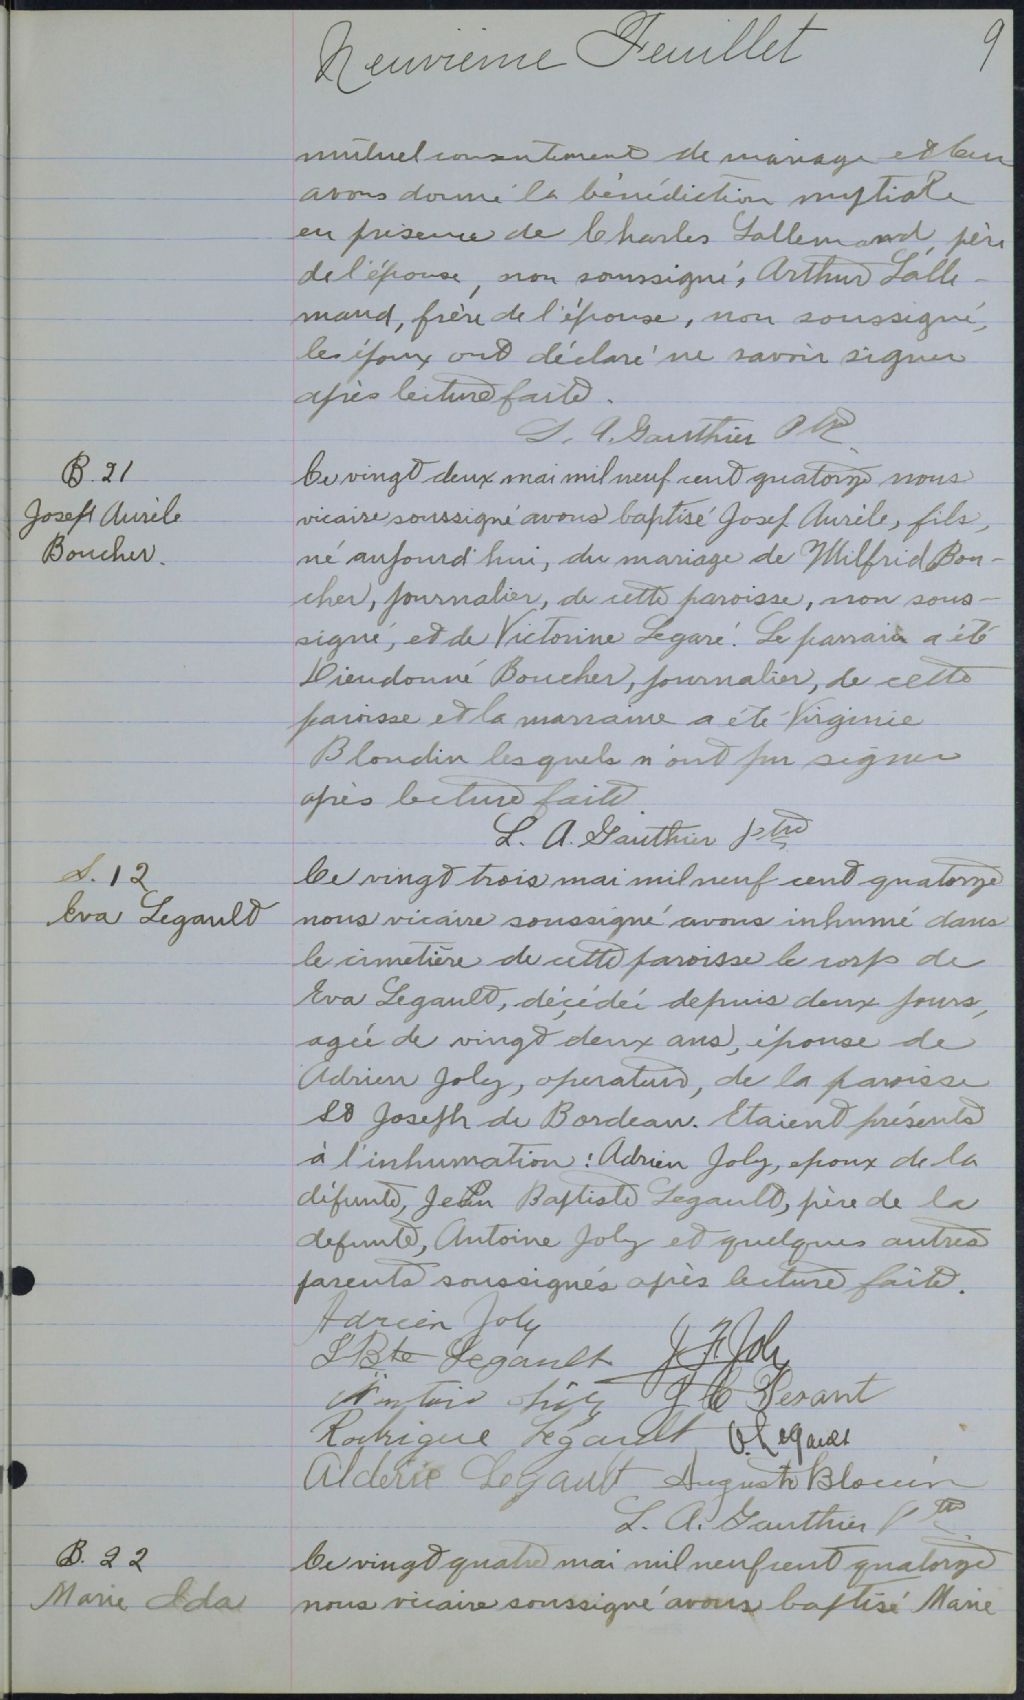 Neuvième Feuillet 9
mutuel consentement de mariage et leur
avons donné la bénédiction nuptiale
en présence de Charles Lallemand, père
de l'épouse, non soussigné, Arthur Lalle-
mand, frère de l'épouse, non soussigné,
les époux ont déclaré ne savoir signer
après lecture faite.
L. A. Gauthier Ptre
B. 21
Joseph Aurèle
Boucher.
Ce vingt deux mai mil neuf cent quatorze nous
vicaire soussigné avons baptisé Josef Aurèle, fils,
né aujourd'hui, du mariage de Wilfrid Bou-
cher, journalier, de cette paroisse, non sous-
signé, et de Victorine Legaré. Le parrain a été
Dieudonné Boucher, journalier, de cette
paroisse et la marraine a été Virginie
Blondin lesquels n'ont pu signer
après lecture faite
L. A. Gauthier ptre
S. 12
Eva Legault
Ce vingt trois mai mil neuf cent quatorze
nous vicaire soussigné avons inhumé dans
le cimetière de cette paroisse le corps de
Eva Legault, décédée depuis deux jours,
agée de vingt deux ans, épouse de
Adrien Joly, operateur, de la paroisse
St Joseph de Bordeau. Etaient présents
à l'inhumation : Adrien Joly, epoux de la
défunte, Jean Baptiste Legault, père de la
defunte, Antoine Joly et quelques autres
parents soussignés après lecture faite.
Adrien Joly
J Bte Legault J. F. Joly
Rodrigue Légault O. Legault
Aldéric Legault Auguste Blouin
L. A. Gauthier Ptre
B. 22
Marie Ida
Ce vingt quatre mai mil neuf cent quatorze
nous vicaire soussigné avons baptisé Marie